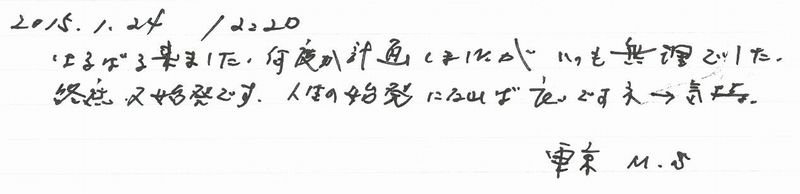 2015.1.24 12:20
はるばる来ました。何度か計画しましたが いつも無理でした。
終着又始発です。人生の始発になれば良いですネ→気持。
東京 M.S